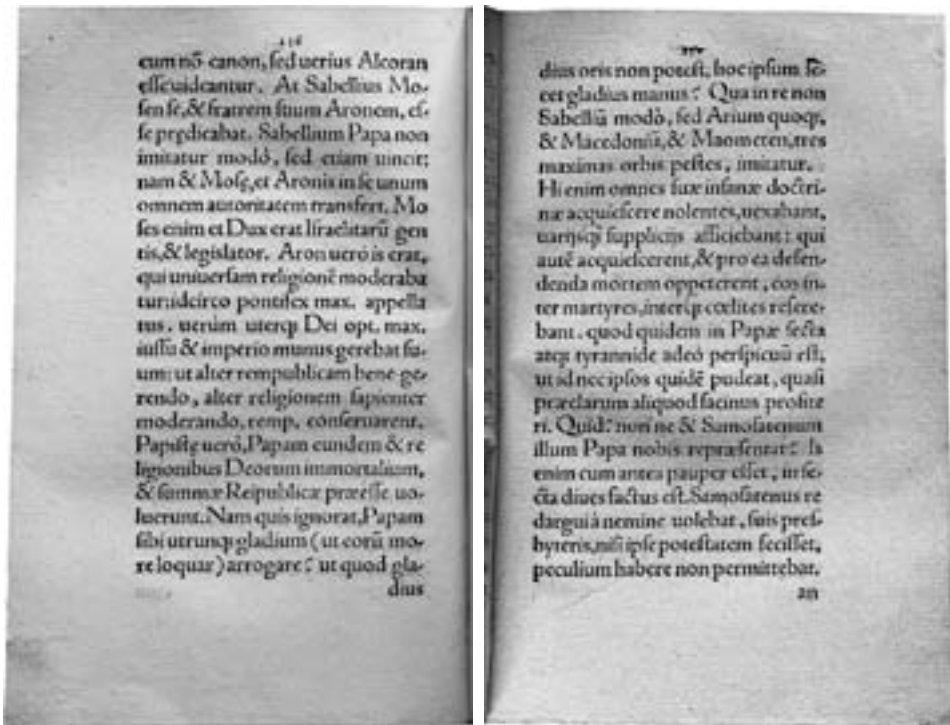 cum nō canon, sed uerius Alcoran
esse uideantur. At Sabellius Mo-
sen se, & fratrem suum Aronem, es-
se prędicabat. Sabellium Papa non
imitatur modò, sed etiam uincit:
nam & Mosę, et Aronis in se unum
omnem autoritatem transfert. Mo
ses enim et Dux erat Israelitarū gen
tis, & legislator. Aron uerò is erat,
qui uniuersam religionē moderaba
tur: idcirco pontifex max. appella
tus. uerùm uterq; Dei opt. max.
iussu & imperio munus gerebat su-
um: ut alter rempublicam bene ge-
rendo, alter religionem sapienter
moderando, remp. conseruarent.
Papistę uerò, Papam eundem & re
ligionibus Deorum immortalium,
& summæ Reipublicæ præesse uo-
luerunt. Nam quis ignorat, Papam
sibi utrunq; gladium (ut eorū mo-
re loquar) arrogare? ut quod gla-
dius
dius oris non potest, hoc ipsum
cet gladius manus? Qua in re non
Sabelliū modò, sed Arium quoq;,
& Macedoniū, & Maometen, tres
maximas orbis pestes, imitatur.
Hi enim omnes suæ insanæ doctri-
næ acquiescere nolentes, uexabant,
uarijsq; supplicijs afficiebant: qui
autē acquiescerent, & pro ea defen-
denda mortem oppeterent, eos in-
ter martyres, interq; cœlites refere-
bant. quod quidem in Papæ secta
atq; tyrannide adeò perspicuū est,
ut id nec ipsos quidē pudeat, quasi
præclarum aliquod facinus profite
ri. Quid? non ne & Samosatenum
illum Papa nobis repræsentat? Is
enim cum antea pauper esset, in se-
cta diues factus est. Samosatenus re
dargui à nemine uolebat, suis pres-
byteris, nisi ipse potestatem fecisset,
peculium habere non permittebat.